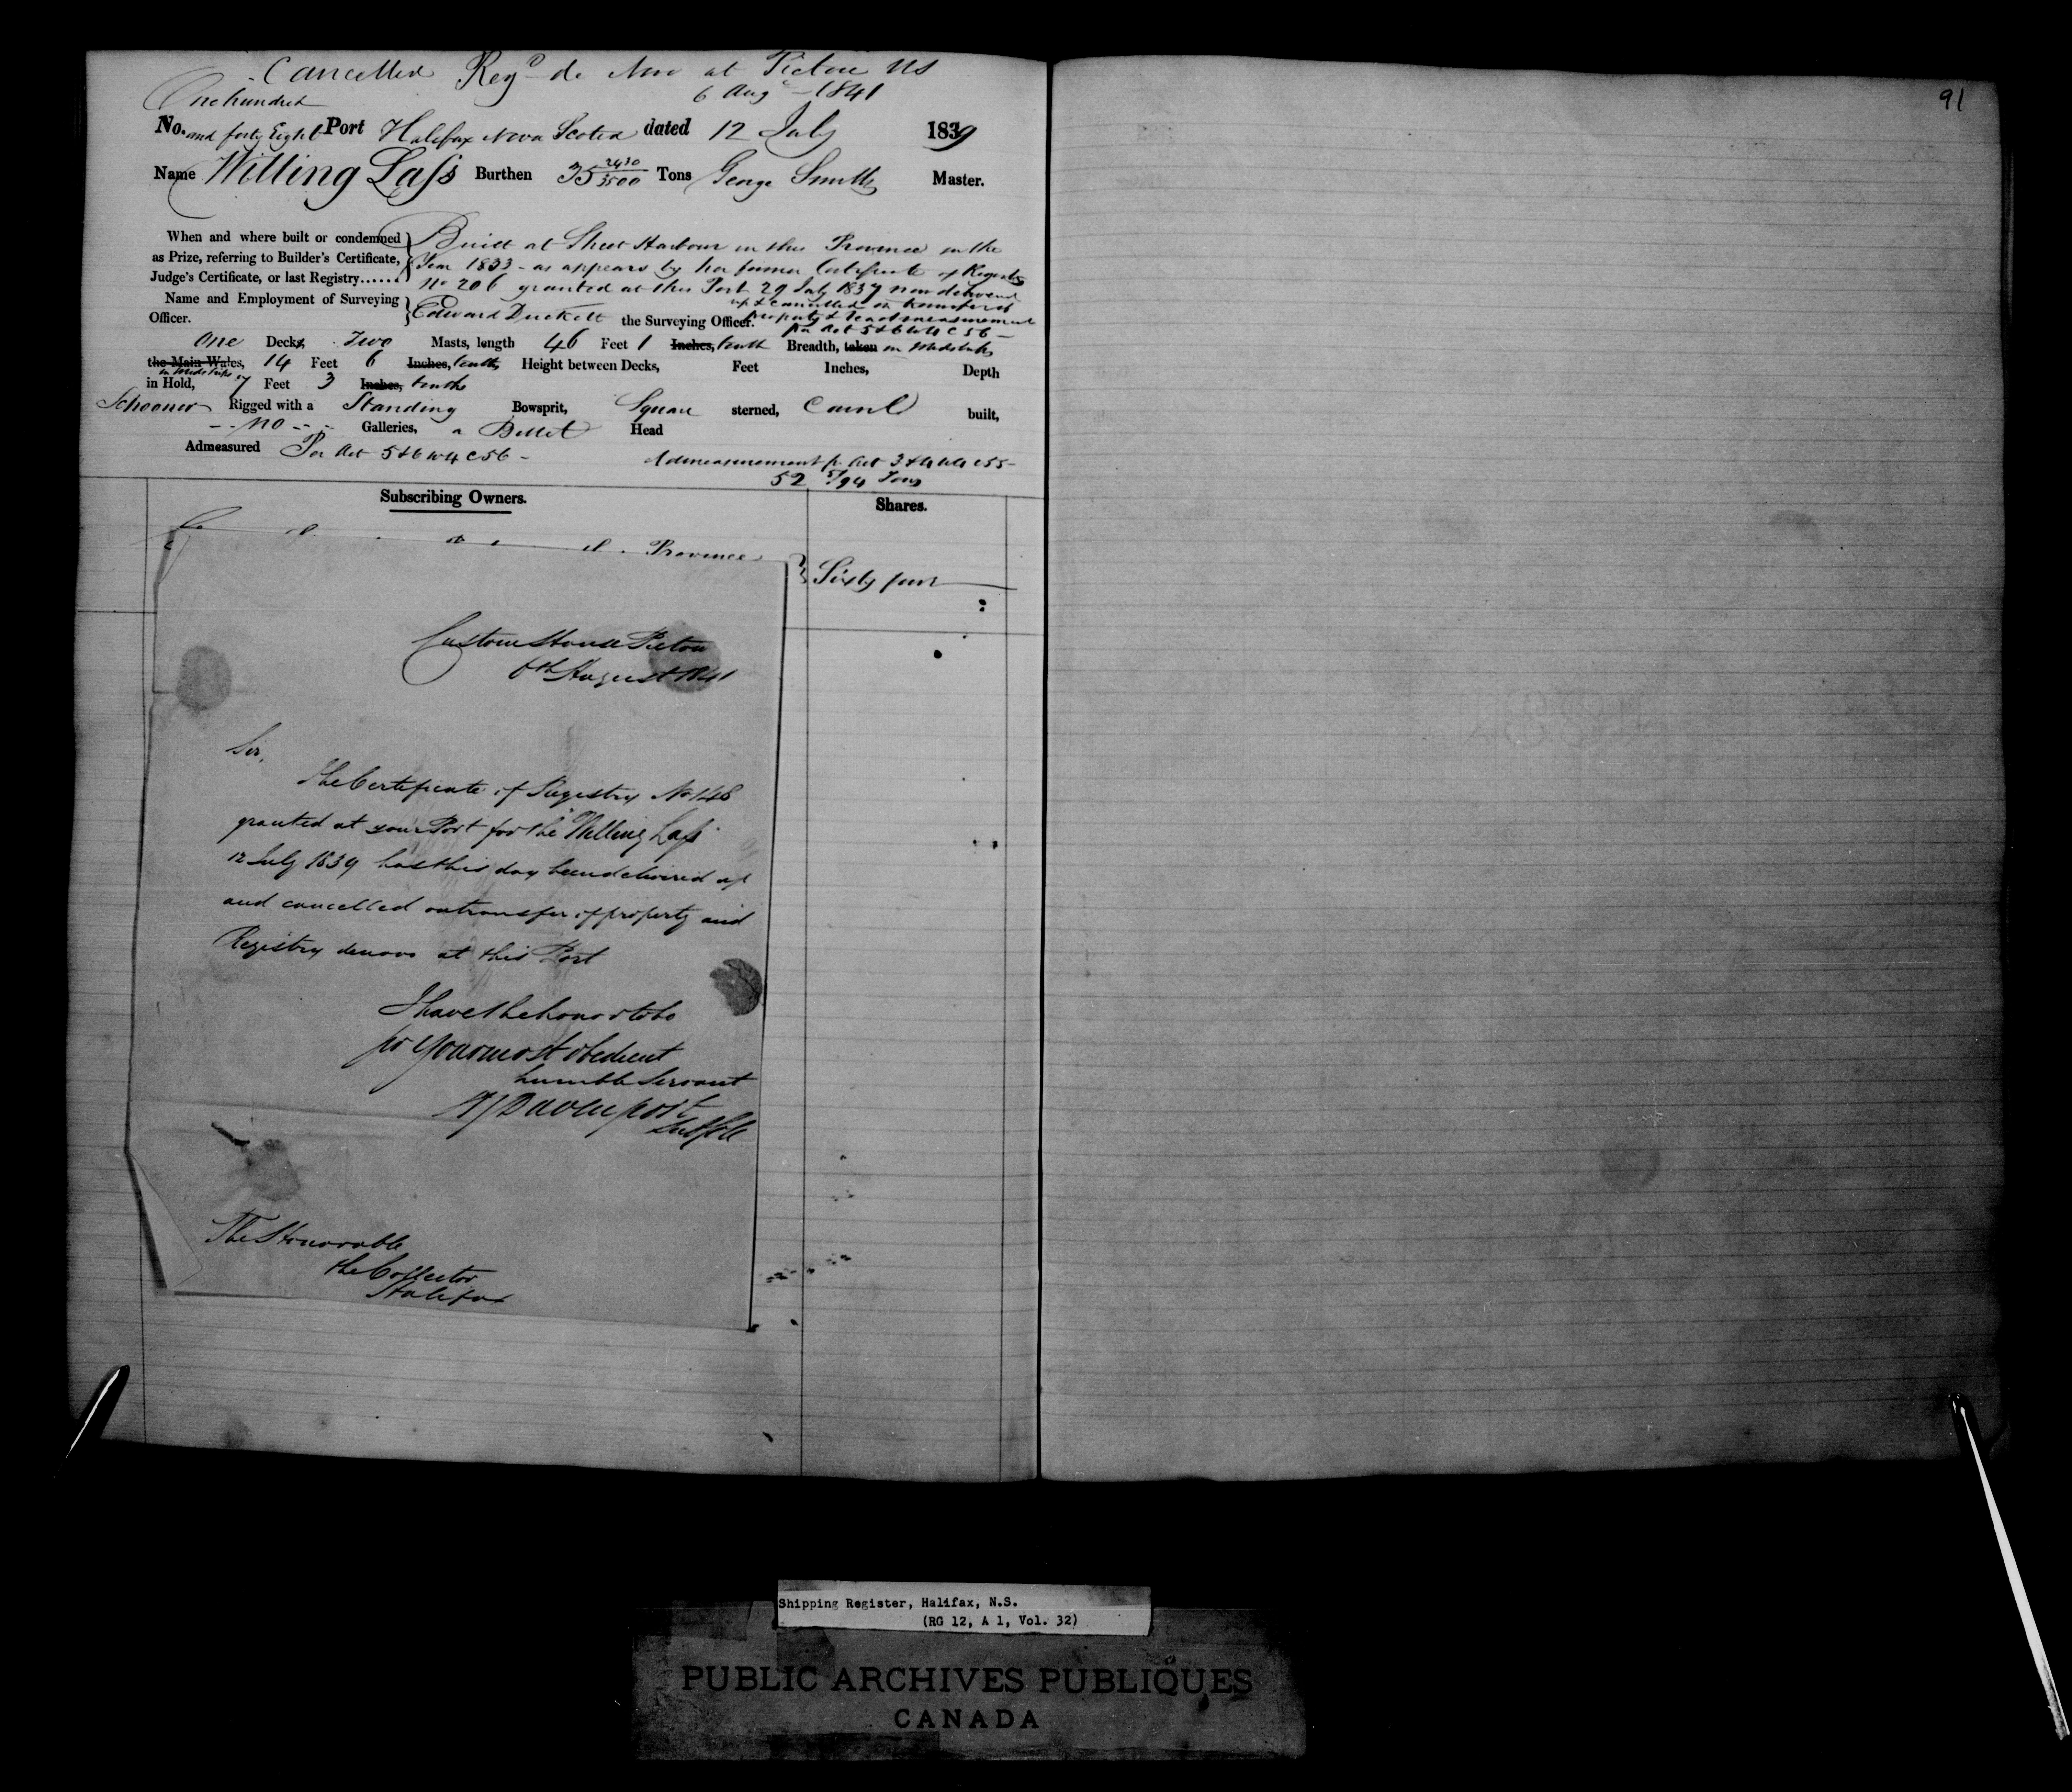 Cancelled Regd de Novo at Pictou NS
6 Augt 1841
One hundred
No. and forty Eight Port Halifax Nova Scotia dated 12 July 1839
Name Willing Lass Burthen 35 2430/3500 Tons George Smith Master.
When and where built or condemned
as Prize, referring to Builder's Certificate,
Judge's Certificate, or last Registry......
Built at Sheet Harbour in this Province in the
Year 1833 - as appears by her former Certificate of Registry
No 206 granted at this Port 29 July 1837 now delivered
up & cancelled on transfer of
property & readmeasurement
per Act 5 & 6 W 4 C 56 -
Name and Employment of Surveying
Officer.
Edward Duckett the Surveying Officer.
One Decks, Two Masts, length 46 Feet 1 Inches, tenth Breadth, taken in Midships
the Main Wales, 14 Feet 6 Inches, tenths Height between Decks, Feet Inches, Depth
in Midships
in Hold, 7 Feet 3 Inches, tenths
Schooner Rigged with a Standing Bowsprit, Square sterned, Carvel built,
- - no - - Galleries, a Billet Head
Admeasured Per Act 5 & 6 W 4 C 56 -
Admeasurement pr Act 3 & 4 W 4 C 55 -
52 /94 Tons
Subscribing Owners. Shares.
Province
Sixty four
Custom House Pictou
6th August 1841
Sir,
The Certificate of Registry No 148
granted at your Port for the "Willing Lass"
12 July 1839 has this day been delivered up
and cancelled on transfer of property and
Registry denovo at this Port
I have the honor to be
Sir Your most obedient
humble Servant
Davenport
The Honorable
the Collector
Halifax
91
Shipping Register, Halifax, N.S.
(RG 12, A 1, Vol. 32)
PUBLIC ARCHIVES PUBLIQUES
CANADA